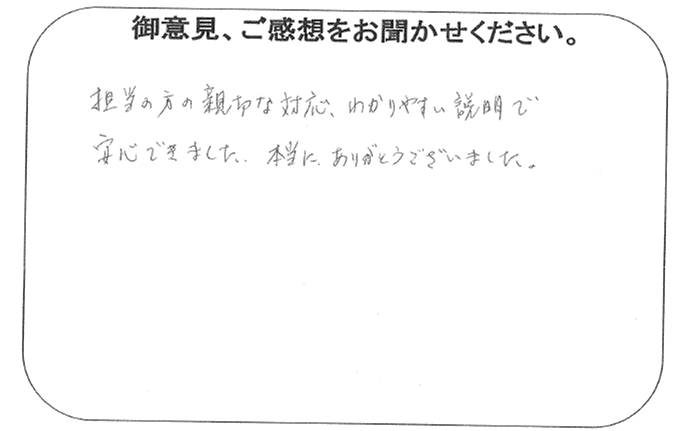 御意見、ご感想をお聞かせください。
担当の方の親切な対応、わかりやすい説明で
安心できました。本当に、ありがとうございました。